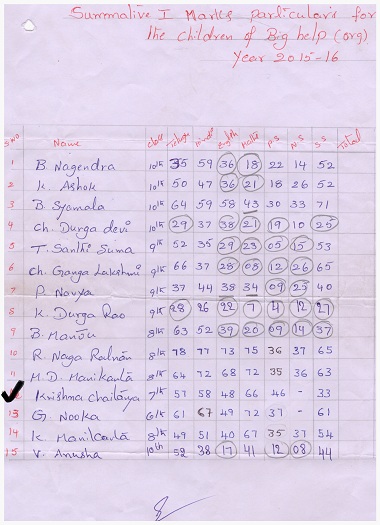 Summative I Marks particulars for
the children of Big help (org)
Year 2015-16
S.NO Name class Telugu Hindi English Maths P.S N.S S.S Total
1 B. Nagendra 10th 35 59 36 18 22 14 52
2 K. Ashok 10th 50 47 36 21 18 26 52
3 B. Syamala 10th 64 59 58 43 30 33 71
4 Ch. Durga devi 10th 29 37 38 21 19 10 25
5 T. Santhi Suma 9th 52 35 29 23 05 15 53
6 Ch. Ganga Lakshmi 9th 66 37 28 08 12 26 65
7 P. Navya 9th 37 44 38 34 09 25 40
8 K. Durga Rao 9th 28 26 22 7 4 12 27
9 B. 8th 63 52 39 20 09 14 37
10 R. Naga 8th 78 77 73 75 36 37 65
11 M.D. Manikanta 8th 64 72 68 72 35 36 63
Krishna Chaitanya 7th 57 58 48 66 46 - 33
13 G. Nooka 6th 61 67 49 72 37 - 61
14 K. Manikanta 8th 49 51 40 67 35 37 54
15 V. Anusha 10th 52 38 17 41 12 08 44